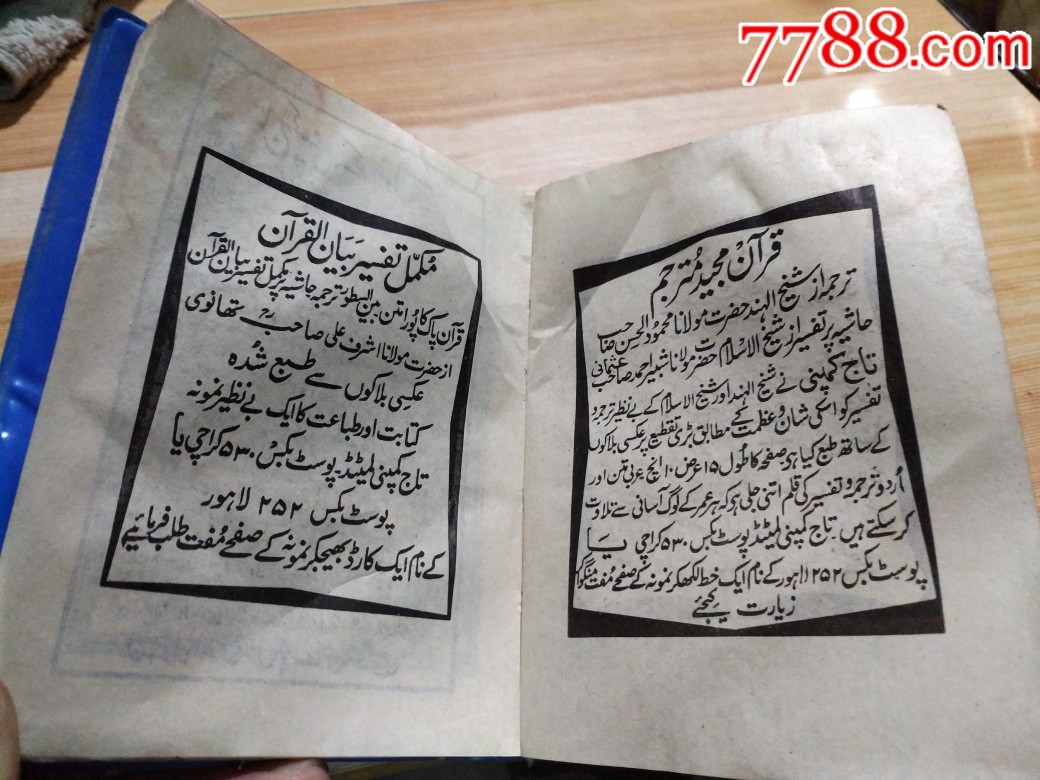 7788.com
قرآن مجید مُترجم
ترجمہ از شیخ الہند حضرت مولانا محمود الحسن صاحب
حاشیہ پر تفسیر از شیخ الاسلام حضرت مولانا شبیر احمد صاحب عثمانی
تاج کمپنی نے شیخ الہند اور شیخ الاسلام کے بے نظیر ترجمہ و
تفسیر کو اسکی شان و عظمت کے مطابق بڑی تقطیع پر عکسی بلاکوں
کے ساتھ طبع کیا ہے صفحہ کا طول ۱۵ عرض ۱۰ انچ عربی متن اور
اُردو ترجمہ و تفسیر کی قلم اتنی جلی ہے کہ ہر عمر کے لوگ آسانی سے تلاوت
کر سکتے ہیں تاج کمپنی لمیٹڈ پوسٹ بکس ۵۳۰ کراچی یا
پوسٹ بکس ۲۵۲ لاہور کے نام ایک خط لکھکر نمونہ کے صفحے مفت منگوا کر
زیارت کیجئے
مُکمل تفسیر بَیَان القرآن
قرآن پاک کا پُورا متن بین السطور ترجمہ حاشیہ پر مکمل تفسیر بیان القرآن
از حضرت مولانا اشرف علی صاحبؒ تھانوی
عکسی بلاکوں سے طبع شُدہ
کتابت اور طباعت کا ایک بے نظیر نمونہ
تاج کمپنی لمیٹڈ پوسٹ بکس ۵۳۰ کراچی یا
پوسٹ بکس ۲۵۲ لاہور
کے نام ایک کارڈ بھیجکر نمونہ کے صفحے مُفت طلب فرمائیے